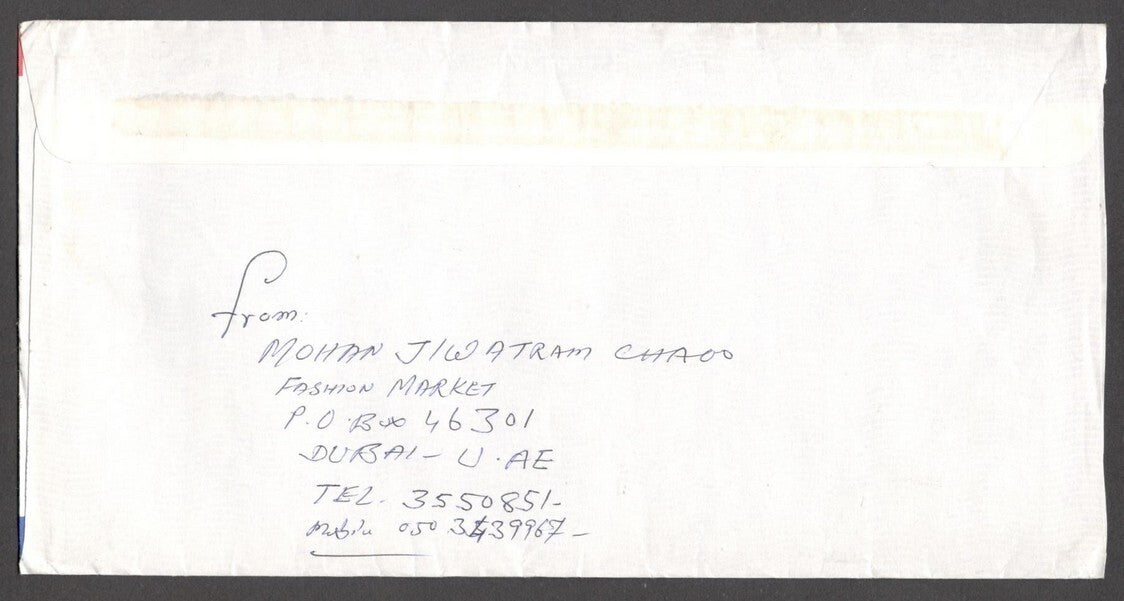 From:
MOHAN JIWATRAM
FASHION MARKET
P.O. Box 46301
DUBAI - U.AE
TEL. 3550851-
Mobile 050